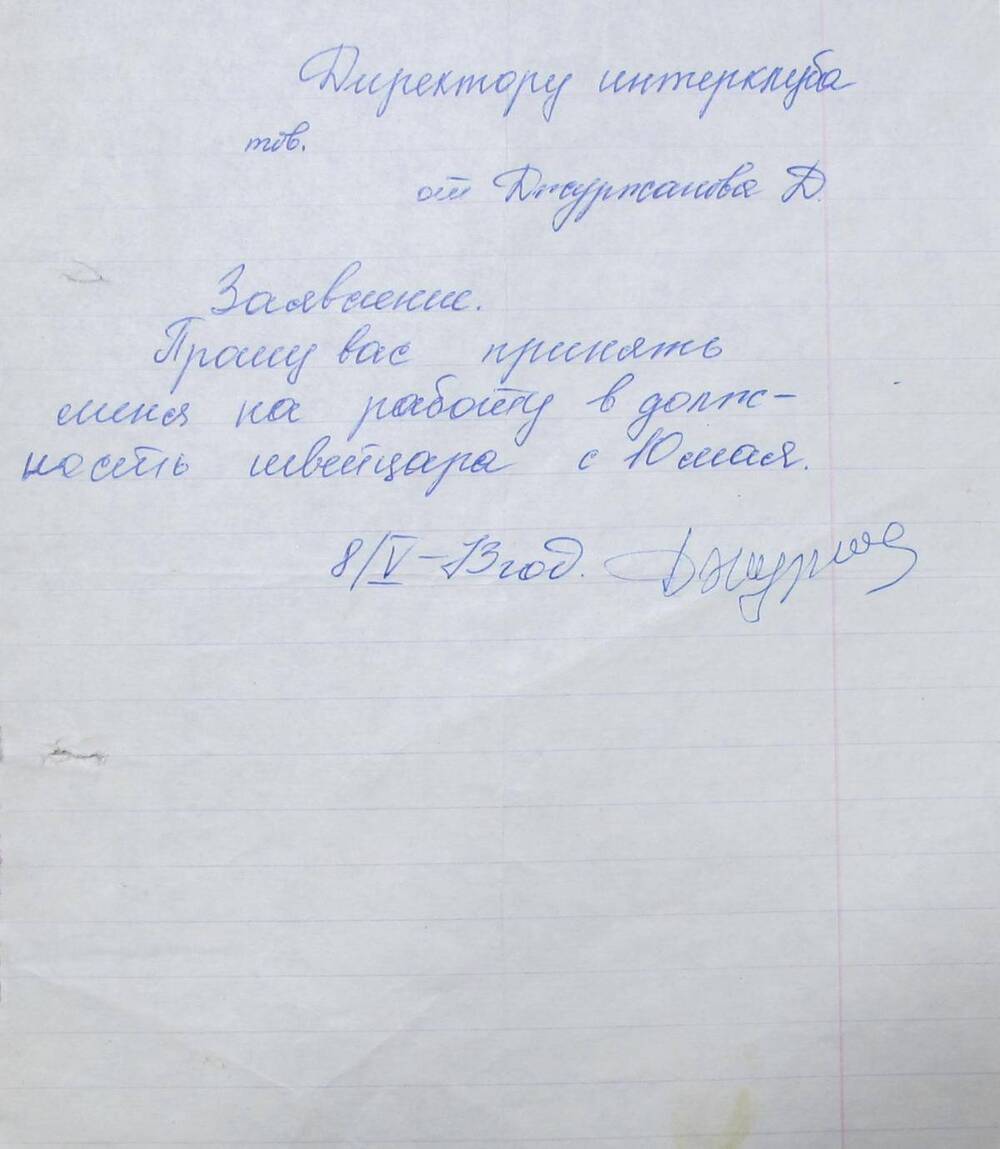 Директору интерклуба
тов.
от Джуржанова Д.
Заявление.
Прошу вас принять
меня на работу в долж-
ность швейцара с 10 мая.
8/V-73 год.